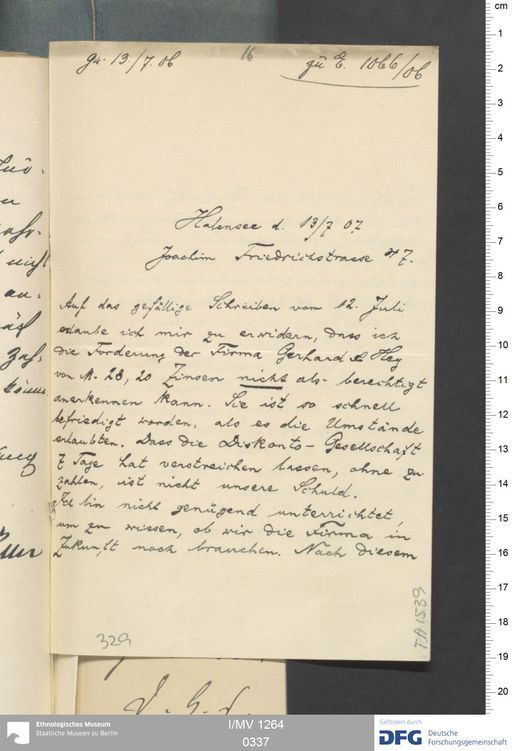 gu. 13./7. 06
16
zu E. 1066/06
Halensee d. 13/7 07
Joachim Friedrichstrasse 47.
Auf das gefällige Schreiben vom 12. Juli
erlaube ich mir zu erwidern, dass ich
die Forderung der Firma Gerhard & Hey
von M. 28,20 Zinsen nicht als berechtigt
anerkennen kann. Sie ist so schnell
befriedigt worden, als es die Umstände
erlaubten. Dass die Diskonto-Gesellschaft
7 Tage hat verstreichen lassen, ohne zu
zahlen, ist nicht unsere Schuld.
Ich bin nicht genügend unterrichtet,
um zu wissen, ob wir die Firma in
Zukunft noch brauchen. Nach diesem
329
TA 1539
cm
1
2
3
4
5
6
7
8
9
10
11
12
13
14
15
16
17
18
19
20
Ethnologisches Museum
Staatliche Museen zu Berlin
I/MV 1264
0337
Gefördert durch
DFG
Deutsche
Forschungsgemeinschaft